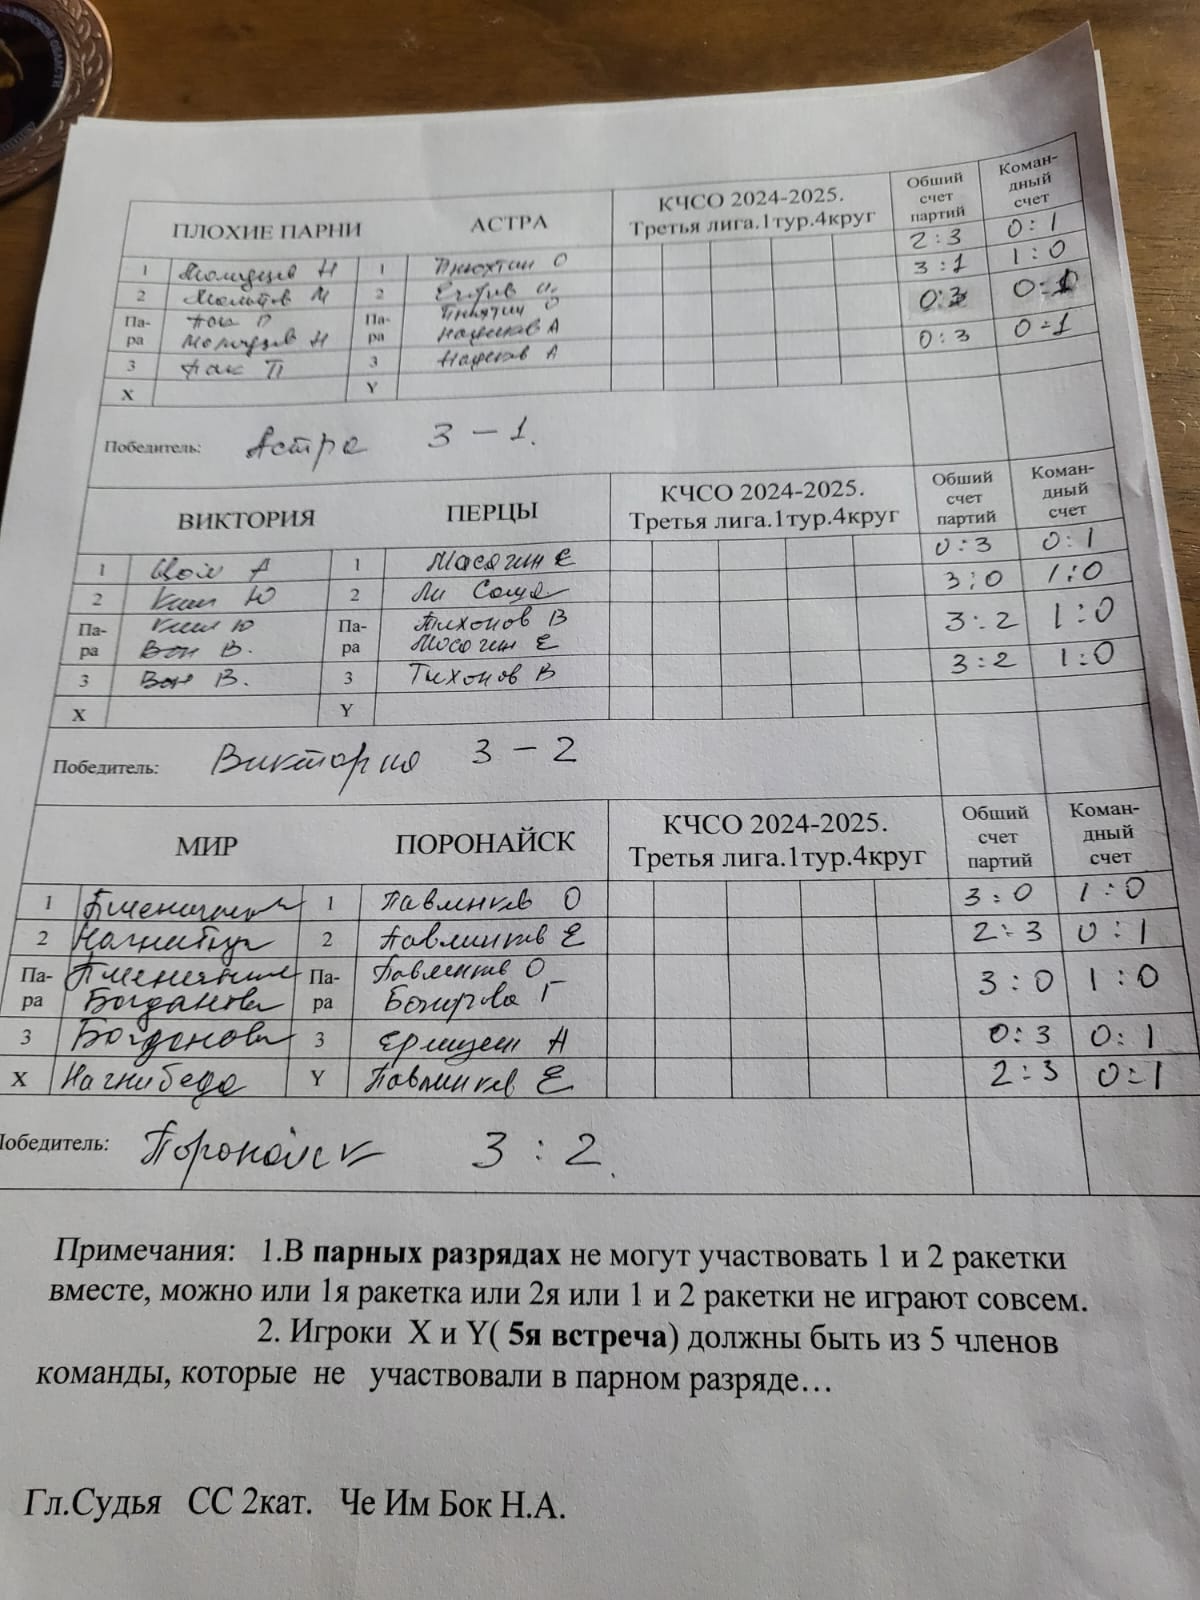 ПЛОХИЕ ПАРНИ АСТРА КЧСО 2024-2025. Третья лига.1тур.4круг Обший счет партий Коман-дный счет
1 Н 1 О 2:3 0:1
2 М 2 3:1 1:0
Па-ра П Па-ра О 0:3 0:1
Н А
3 Пак П 3 А 0:3 0=1
X Y
Победитель: Астра 3 – 1.
ВИКТОРИЯ ПЕРЦЫ КЧСО 2024-2025. Третья лига.1тур.4круг Обший счет партий Коман-дный счет
1 Цой А 1 Масагин Е 0:3 0:1
2 Ким Ю 2 Ли Саша 3:0 1:0
Па-ра Ким Ю Па-ра Тихонов В 3:2 1:0
Вон В. Мосагин Е
3 Вон В. 3 Тихонов В 3:2 1:0
X Y
Победитель: Виктория 3 – 2
МИР ПОРОНАЙСК КЧСО 2024-2025. Третья лига.1тур.4круг Обший счет партий Коман-дный счет
1 1 О 3:0 1:0
2 2 Е 2:3 0:1
Па-ра Па-ра О 3:0 1:0
Богданова Г
3 Богданова 3 А 0:3 0:1
X Нагнибеда Y Е 2:3 0:1
Победитель: Поронайск 3 : 2.
Примечания: 1.В парных разрядах не могут участвовать 1 и 2 ракетки
вместе, можно или 1я ракетка или 2я или 1 и 2 ракетки не играют совсем.
2. Игроки X и Y( 5я встреча) должны быть из 5 членов
команды, которые не участвовали в парном разряде…
Гл.Судья СС 2кат. Че Им Бок Н.А.